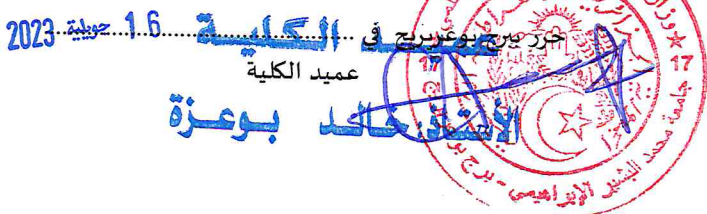 حرر ببرج بوعريريج في 16 جويلية 2023
عميد الكلية
عميد الكلية
الأستاذ: خالد بوعزة
17
17
جامعة محمد البشير الإبراهيمي - برج بو